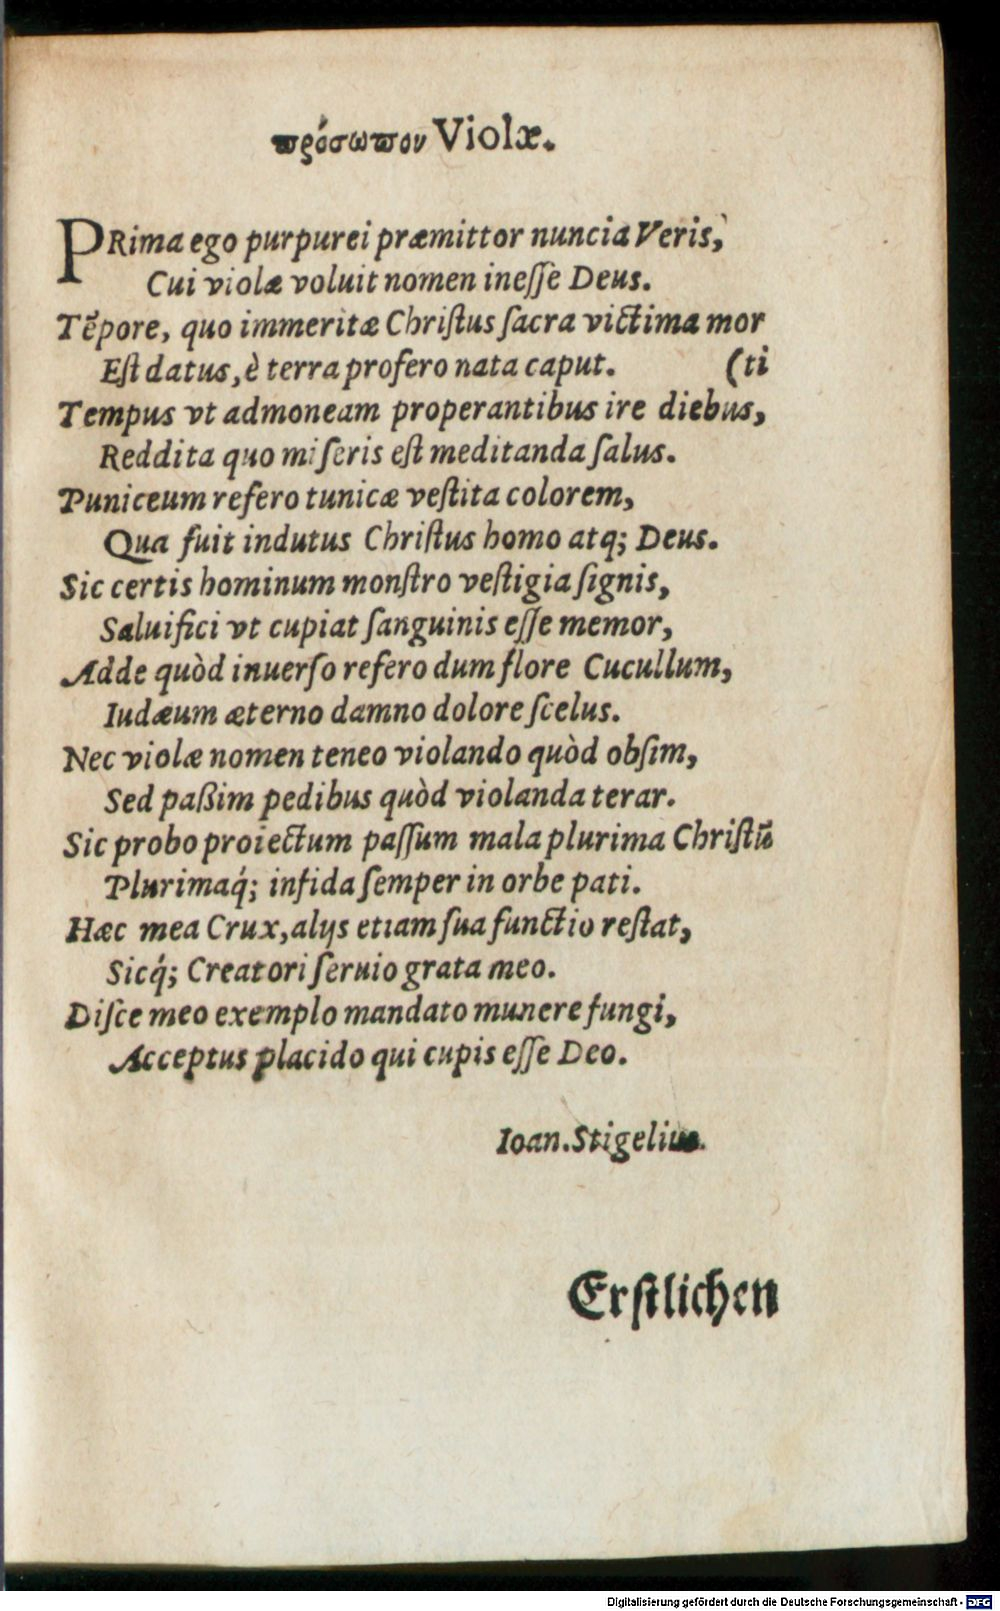 ϖρόσωϖον Violæ.
PRima ego purpurei præmittor nuncia Veris,
Cui violæ voluit nomen ineſſe Deus.
Tēpore, quo immeritæ Chriſtus ſacra victima mor
Eſt datus, è terra profero nata caput. (ti
Tempus vt admoneam properantibus ire diebus,
Reddita quo miſeris eſt meditanda ſalus.
Puniceum refero tunicæ veſtita colorem,
Qua fuit indutus Chriſtus homo atq; Deus.
Sic certis hominum monſtro veſtigia ſignis,
Saluifici vt cupiat ſanguinis eſſe memor,
Adde quòd inuerſo refero dum flore Cucullum,
Iudæum æterno damno dolore ſcelus.
Nec violæ nomen teneo violando quòd obſim,
Sed paßim pedibus quòd violanda terar.
Sic probo proiectum paſſum mala plurima Chriſtū
Plurimaq́; infida ſemper in orbe pati.
Hæc mea Crux, alijs etiam ſua functio reſtat,
Sicq́; Creatori ſeruio grata meo.
Diſce meo exemplo mandato munere fungi,
Acceptus placido qui cupis eſſe Deo.
Ioan. Stigelius.
Erſtlichen
Digitalisierung gefördert durch die Deutsche Forschungsgemeinschaft - DFG